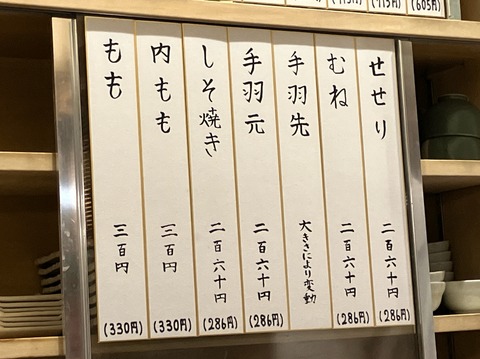 せせり 二百六十円 (286円)
むね 二百六十円 (286円)
手羽先 大きさにより変動
手羽元 二百六十円 (286円)
しそ焼き 二百六十円 (286円)
内もも 三百円 (330円)
もも 三百円 (330円)
(605円)